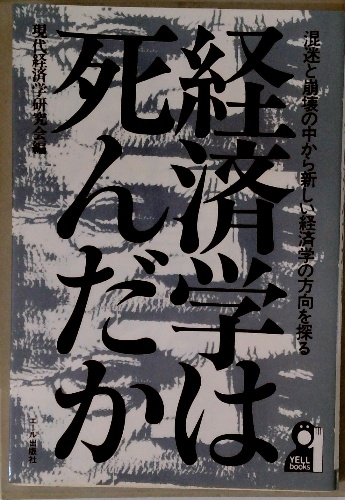 混迷と崩壊の中から新しい経済学の方向を探る
経済学は
死んだか
現代経済学研究会編
エール出版社
YELL
books